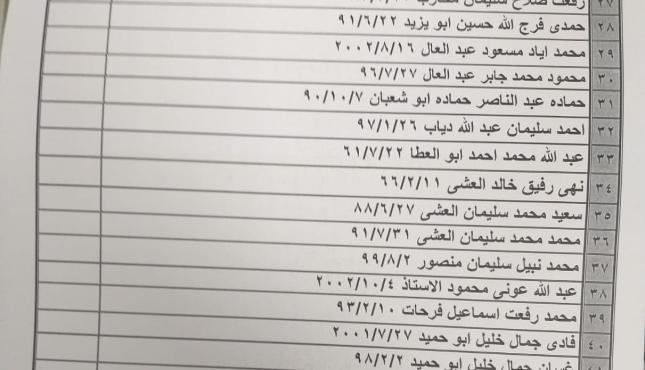 ٢٧ رفعت صلاح سليمان
٢٨ حمدى فرج الله حسين ابو يزيد ٩١/٦/٢٢
٢٩ محمد اياد مسعود عبد العال ٢٠٠٢/٨/١٦
٣٠ محمود محمد جابر عبد العال ٩٦/٧/٢٧
٣١ حماده عبد الناصر حماده ابو شعبان ٩٠/١٠/٧
٣٢ احمد سليمان عبد الله دياب ٩٧/١/٢٦
٣٣ عبد الله محمد احمد ابو العطا ٦١/٧/٢٢
٣٤ نهى رفيق خالد العشى ٦٦/٢/١١
٣٥ سعيد محمد سليمان العشى ٨٨/٦/٢٧
٣٦ محمد محمد سليمان العشى ٩١/٧/٣١
٣٧ محمد نبيل سليمان منصور ٩٩/٨/٢
٣٨ عبد الله عونى محمود الاستاذ ٢٠٠٢/١٠/٤
٣٩ محمد رفعت اسماعيل فرحات ٩٣/٢/١٠
٤٠ فادى جمال خليل ابو حميد ٢٠٠١/٧/٢٧
٤١ غسان جمال خليل ابو حميد ٩٨/٢/٢